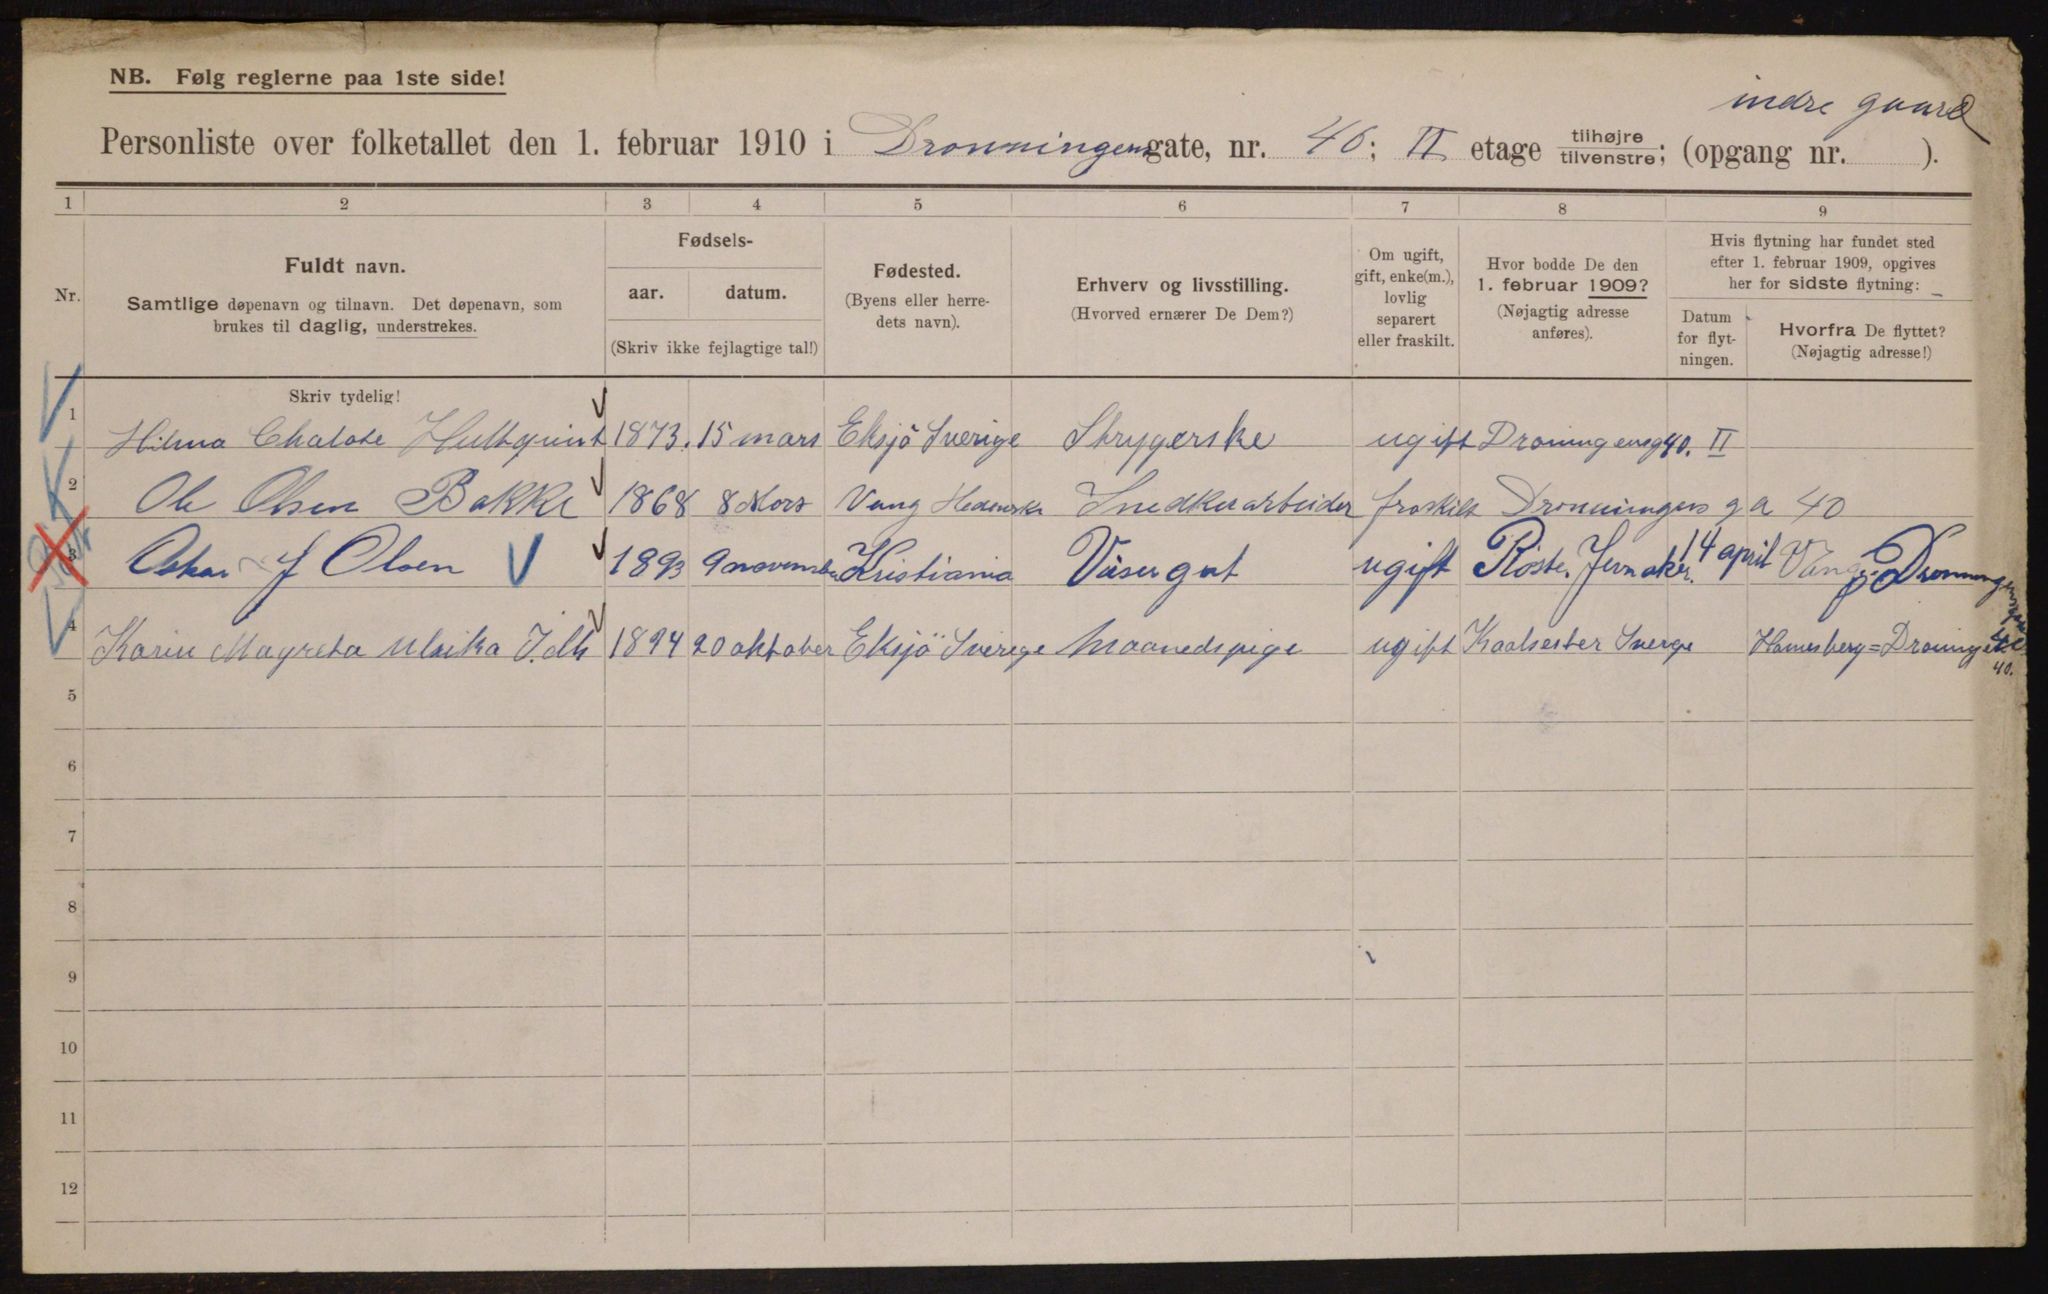 NB. Følg reglerne paa 1ste side!
indre gaard
Personliste over folketallet den 1. februar 1910 i Dronningensgate, nr. 40; II etage tilhøjre tilvenstre; (opgang nr. ).
1 2 3 4 5 6 7 8 9
Nr.
Fuldt navn.
Samtlige døpenavn og tilnavn. Det døpenavn, som
brukes til daglig, understrekes.
Fødsels-
aar. datum.
(Skriv ikke fejlagtige tal!)
Fødested.
(Byens eller herre-
dets navn).
Erhverv og livsstilling.
(Hvorved ernærer De Dem?)
Om ugift,
gift, enke(m.),
lovlig
separert
eller fraskilt.
Hvor bodde De den
1. februar 1909?
(Nøjagtig adresse
anføres).
Hvis flytning har fundet sted
efter 1. februar 1909, opgives
her for sidste flytning:
Datum
for flyt-
ningen.
Hvorfra De flyttet?
(Nøjagtig adresse!)
Skriv tydelig!
1 Hilma Chalote Hultquist 1873. 15 mars Eksjö Sverige Strygerske ugift Droningensg 40. II
2 Ole Olsen Bakke 1868 8 Mars Vang Hedemske Snedkerarbeider fraskilt Dronningens ga 40
3 Oskar J Olsen 1893 9 november Kristiania Visergut ugift Jevnaker. 14 april Vang
4 Karin Magreta Ulrika 1894 20 oktober Eksjö Sverige Maanedspige ugift Sverge
40.
5
6
7
8
9
10
11
12